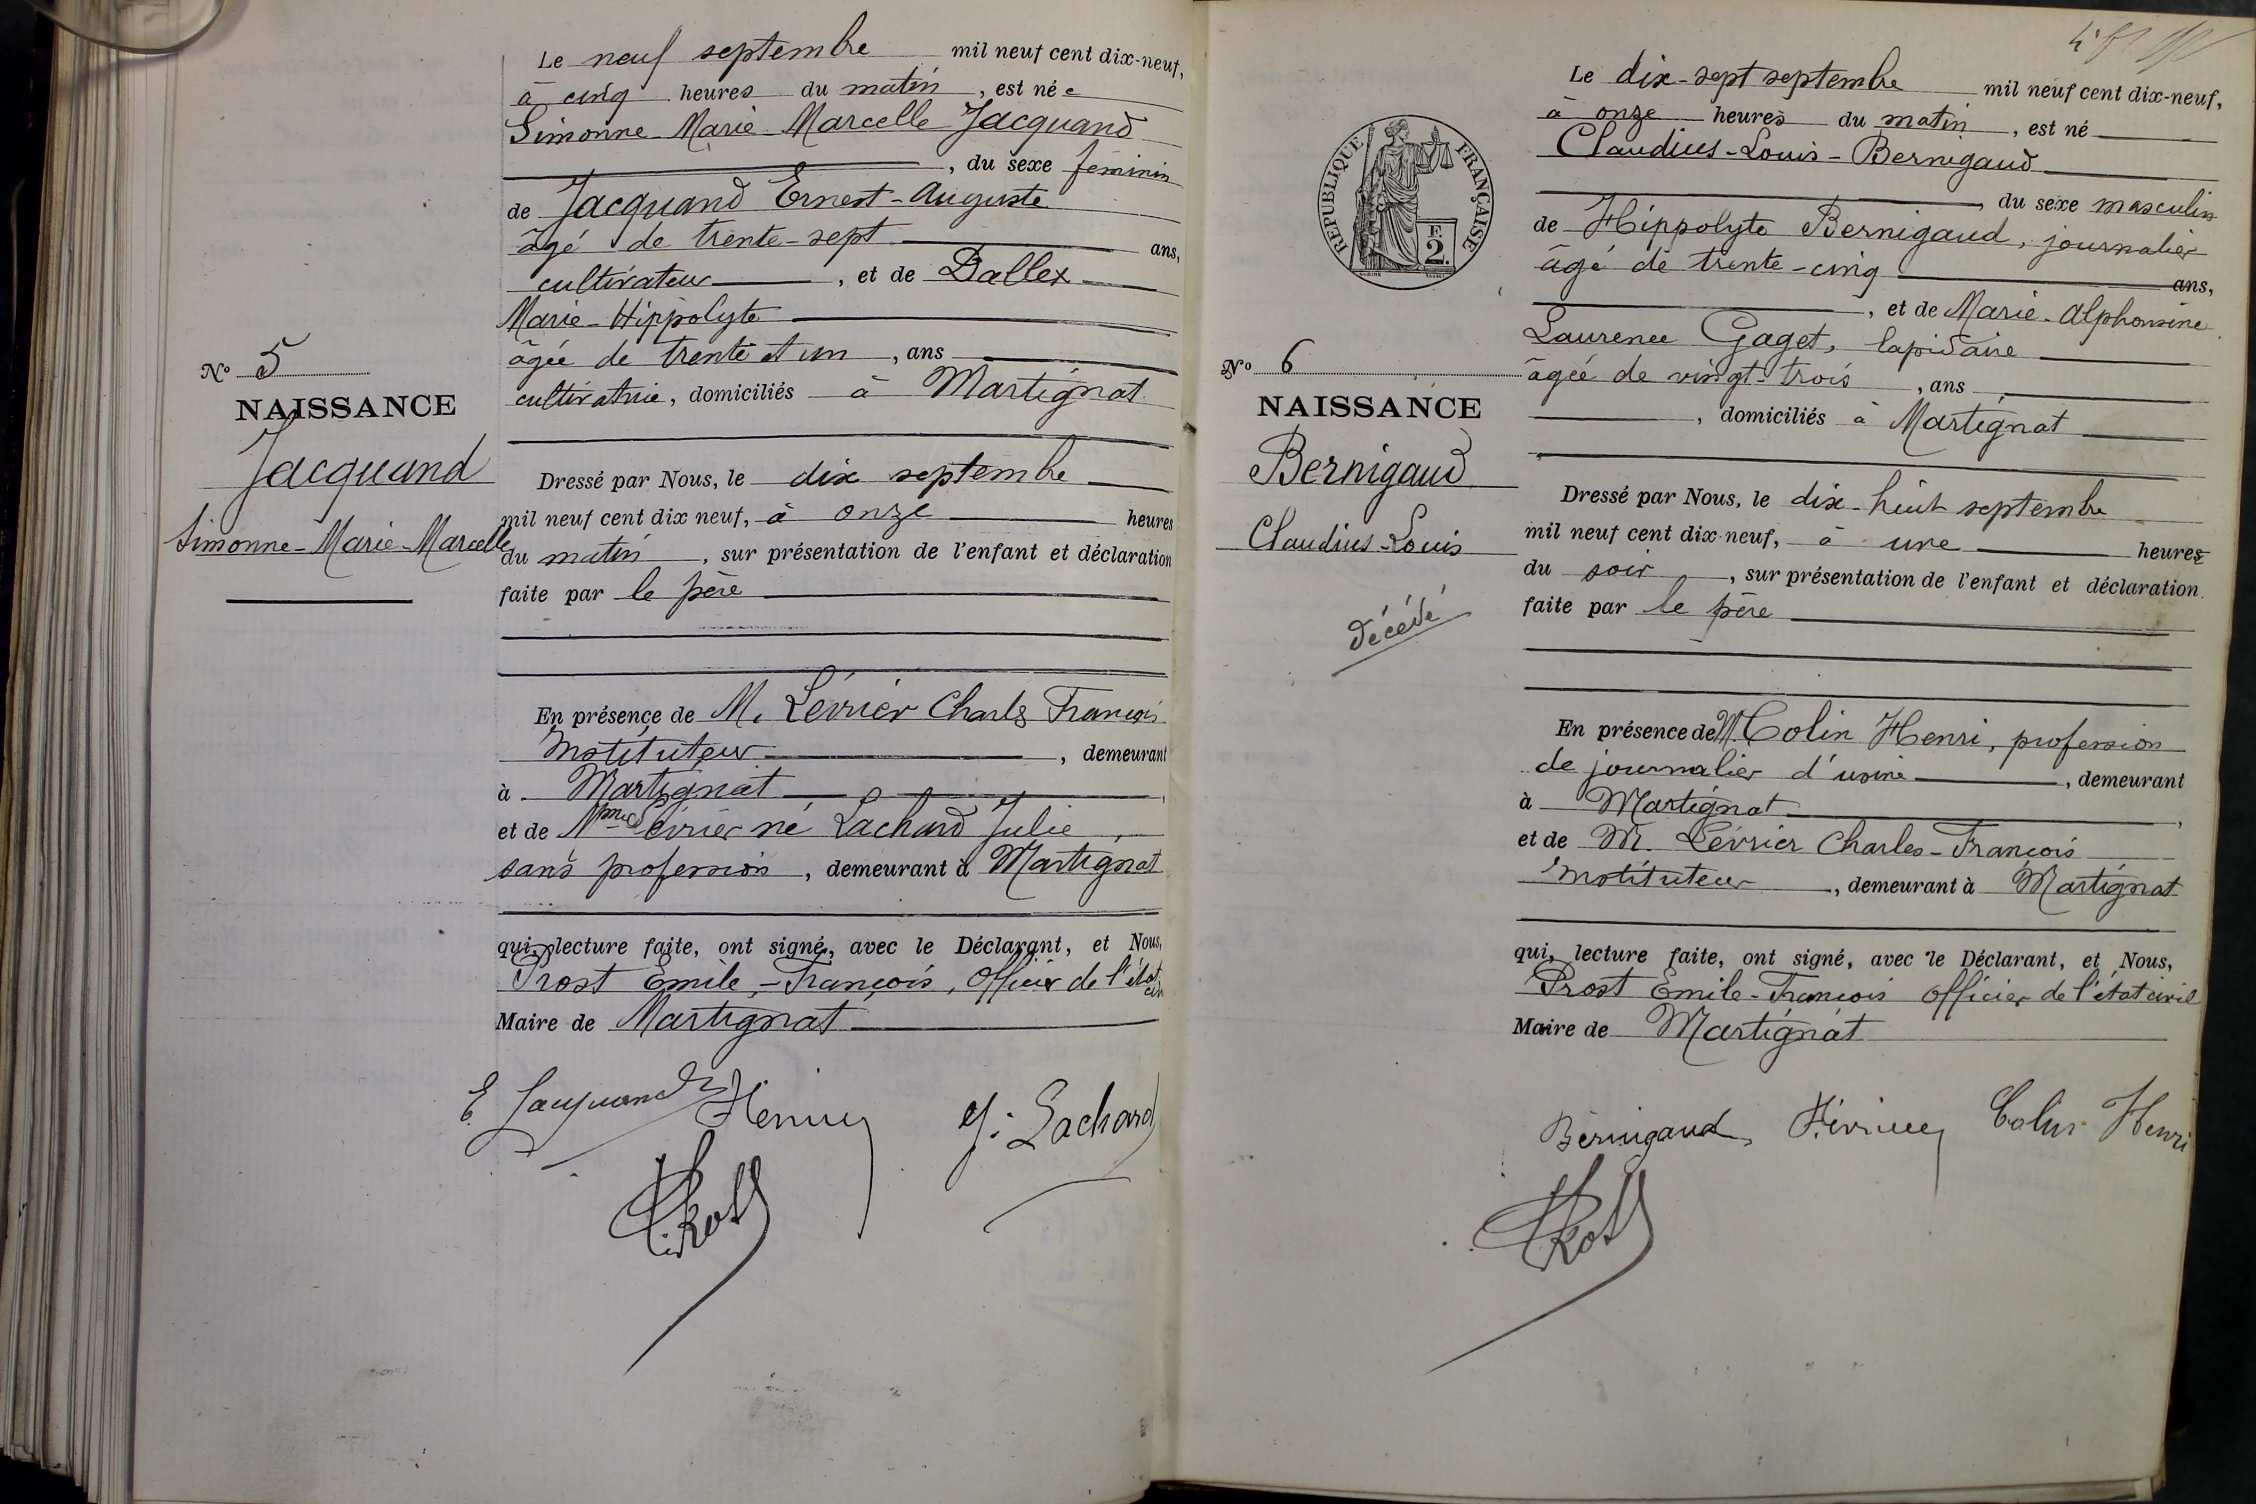 Le neuf septembre mil neuf cent dix-neuf,
à cinq heures du matin, est née
Simonne Marie Marcelle Jacquand
, du sexe féminin
de Jacquand Ernest-Auguste
âgé de trente-sept ans,
cultivateur, et de Dallex
Marie-Hippolyte
âgée de trente et un, ans
cultivatrice, domiciliés à Martignat
No 5
NAISSANCE
Jacquand
Simonne-Marie-Marcelle
Dressé par Nous, le dix septembre
mil neuf cent dix neuf, à onze heures
du matin, sur présentation de l'enfant et déclaration
faite par le père
En présence de M. Lévrier Charles François
Instituteur, demeurant
à Martignat,
et de Mme Lévrier né Lachard Julie,
sans profession, demeurant à Martignat
qui, lecture faite, ont signé, avec le Déclarant, et Nous,
Prost Emile,-François, Officier de l'état civ
Maire de Martignat
E. Jacquand
J. Lachard
Le dix-sept septembre mil neuf cent dix-neuf,
à onze heures du matin, est né
Claudius-Louis-Bernigaud
, du sexe masculin
de Hippolyte Bernigaud, journalier
âgé de trente-cinq ans,
, et de Marie-Alphonsine
Laurence Gaget, lapidaire
âgée de vingt-trois, ans
, domiciliés à Martignat
RÉPUBLIQUE FRANÇAISE
F.
2.
No 6
NAISSANCE
Bernigaud
Claudius-Louis
décédé
Dressé par Nous, le dix-huit septembre
mil neuf cent dix-neuf, à une heures
du soir, sur présentation de l'enfant et déclaration
faite par le père
En présence de M. Colin Henri, profession
de journalier d'usine, demeurant
à Martignat,
et de M. Lévrier Charles-François
Instituteur, demeurant à Martignat
qui, lecture faite, ont signé, avec le Déclarant, et Nous,
Prost Emile-François Officier de l'état civil
Maire de Martignat
Bernigaud Colin Henri